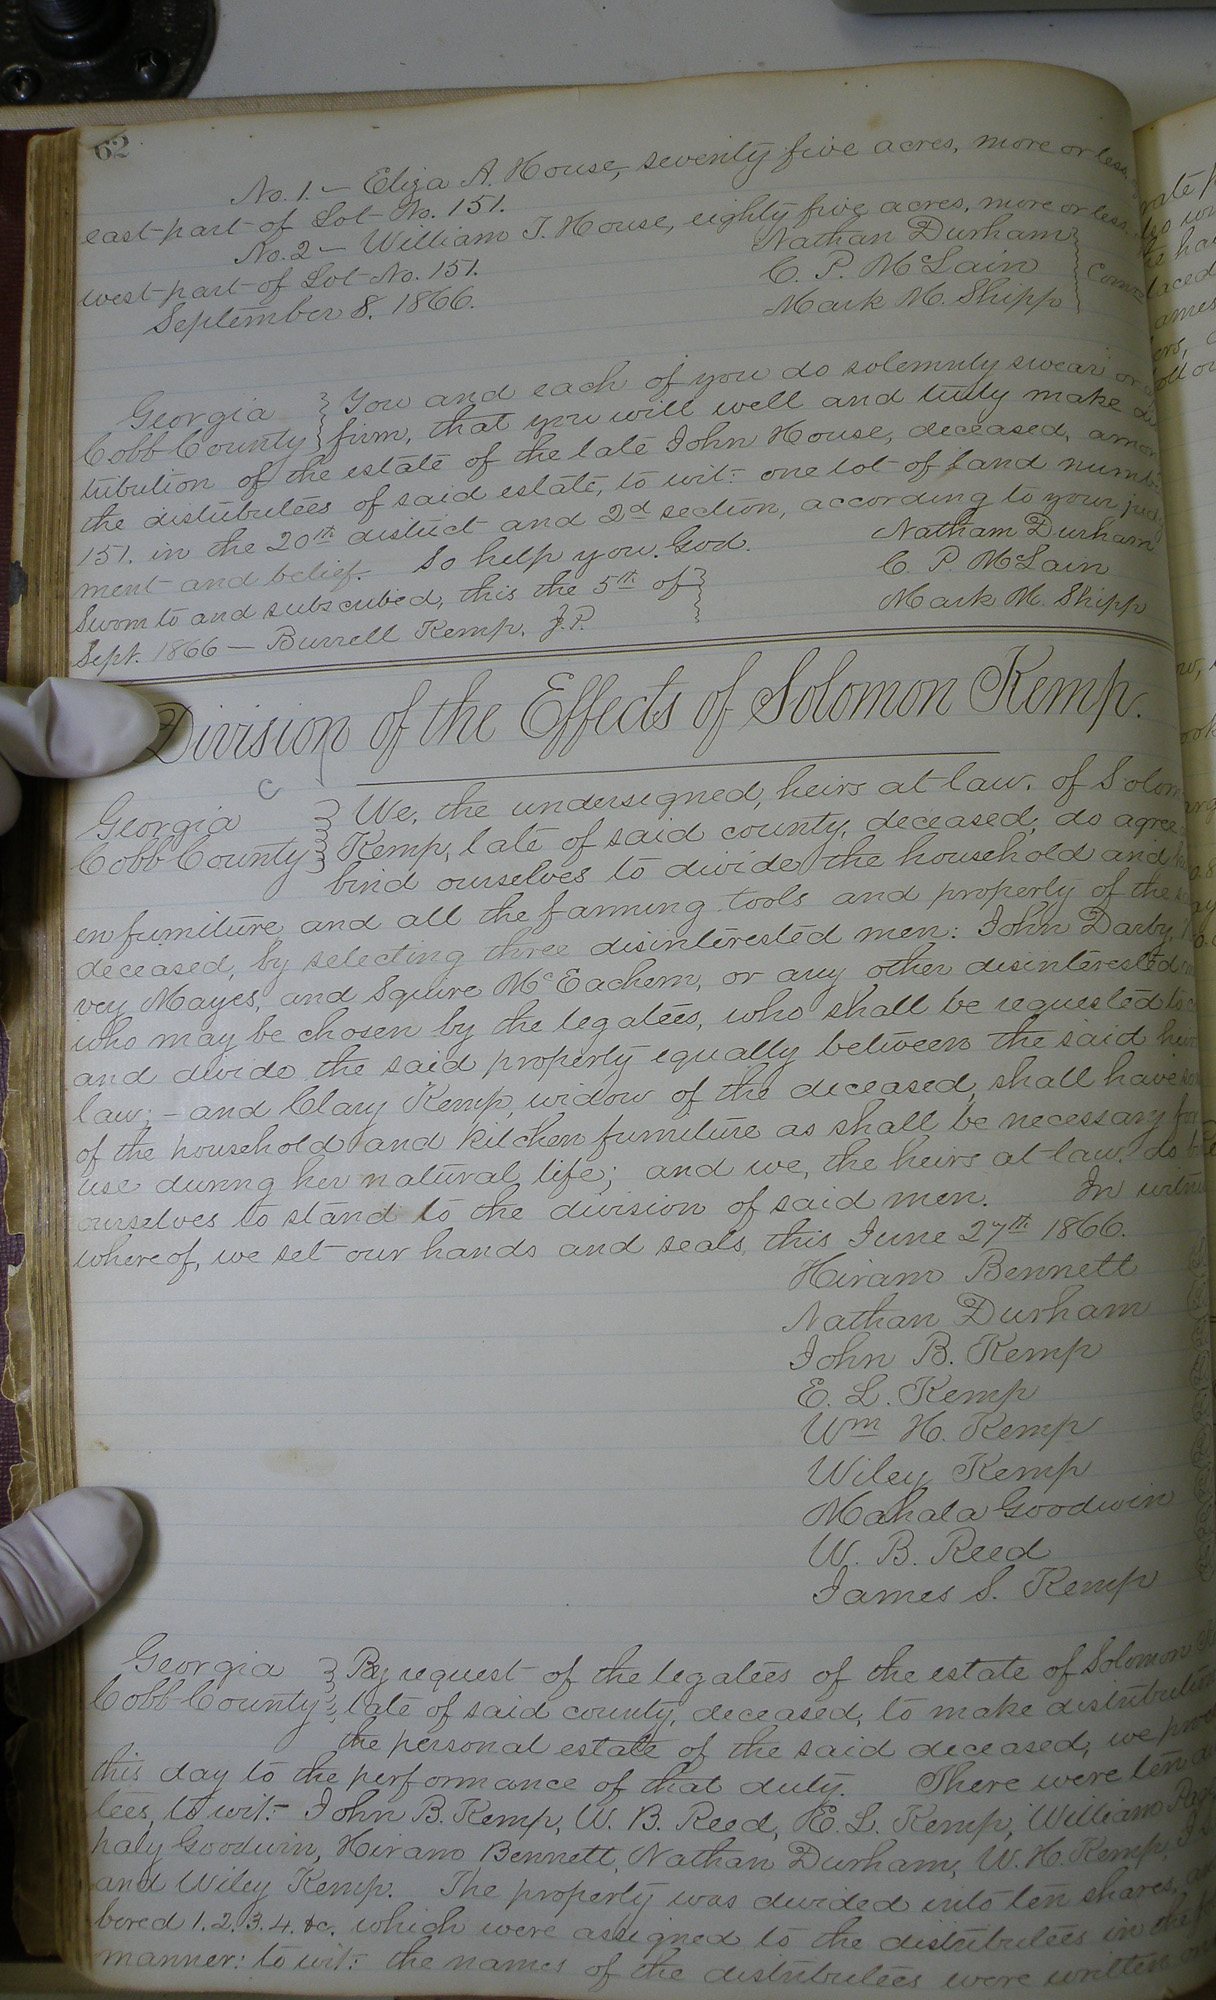 62
No. 1. — Eliza A. House, seventy five acres, more or less,
east part of Lot No. 151.
No. 2 — William T. House, eighty five acres, more or less.
west part of Lot No. 151.
Nathan Durham
C. P. McLain
Mark M. Shipp
Comrs
September 8. 1866.
Georgia
Cobb County
You and each of you do solemnly swear or
firm, that you will well and truly make dis
tribution of the estate of the late John House, deceased, among
the distributees of said estate, to wit: one lot of land number
151. in the 20th district and 2d section, according to your judg
ment and belief. So help you God.
Nathan Durham
C. P. McLain
Mark M. Shipp
Sworn to and subscribed, this the 5th of
Sept. 1866 — Burrell Kemp. J.P.
Division of the Effects of Solomon Kemp.
Georgia
Cobb County
We, the undersigned, heirs at law, of Solom
Kemp, late of said county, deceased, do agree
bind ourselves to divide the household and
en furniture and all the farming tools and property of the
deceased, by selecting three disinterested men: John Darby,
vey Mayes, and Squire McEachern, or any other disinterested
who may be chosen by the legatees, who shall be requested to
and divide the said property equally between the said heirs
law; — and Clary Kemp, widow of the deceased, shall have so
of the household and kitchen furniture as shall be necessary for
use during her natural life; and we, the heirs at law, do
ourselves to stand to the division of said men. In witne
whereof, we set our hands and seals, this June 27th 1866.
Hiram Bennett
Nathan Durham
John B. Kemp
E. L. Kemp
Wm H. Kemp
Wiley Kemp
Mahala Goodwin
W. B. Reed
James S. Kemp
Georgia
Cobb County
By request of the legatees of the estate of Solomon
late of said county, deceased, to make distribution
the personal estate of the said deceased, we
this day to the performance of that duty. There were ten
tees, to wit:— John B. Kemp, W. B. Reed, E. L. Kemp, William
haly Goodwin, Hiram Bennett, Nathan Durham, W. H. Kemp,
and Wiley Kemp. The property was divided into ten shares,
bered 1. 2. 3. 4. &c. which were assigned to the distributees in the
manner: to wit: the names of the distributees were written